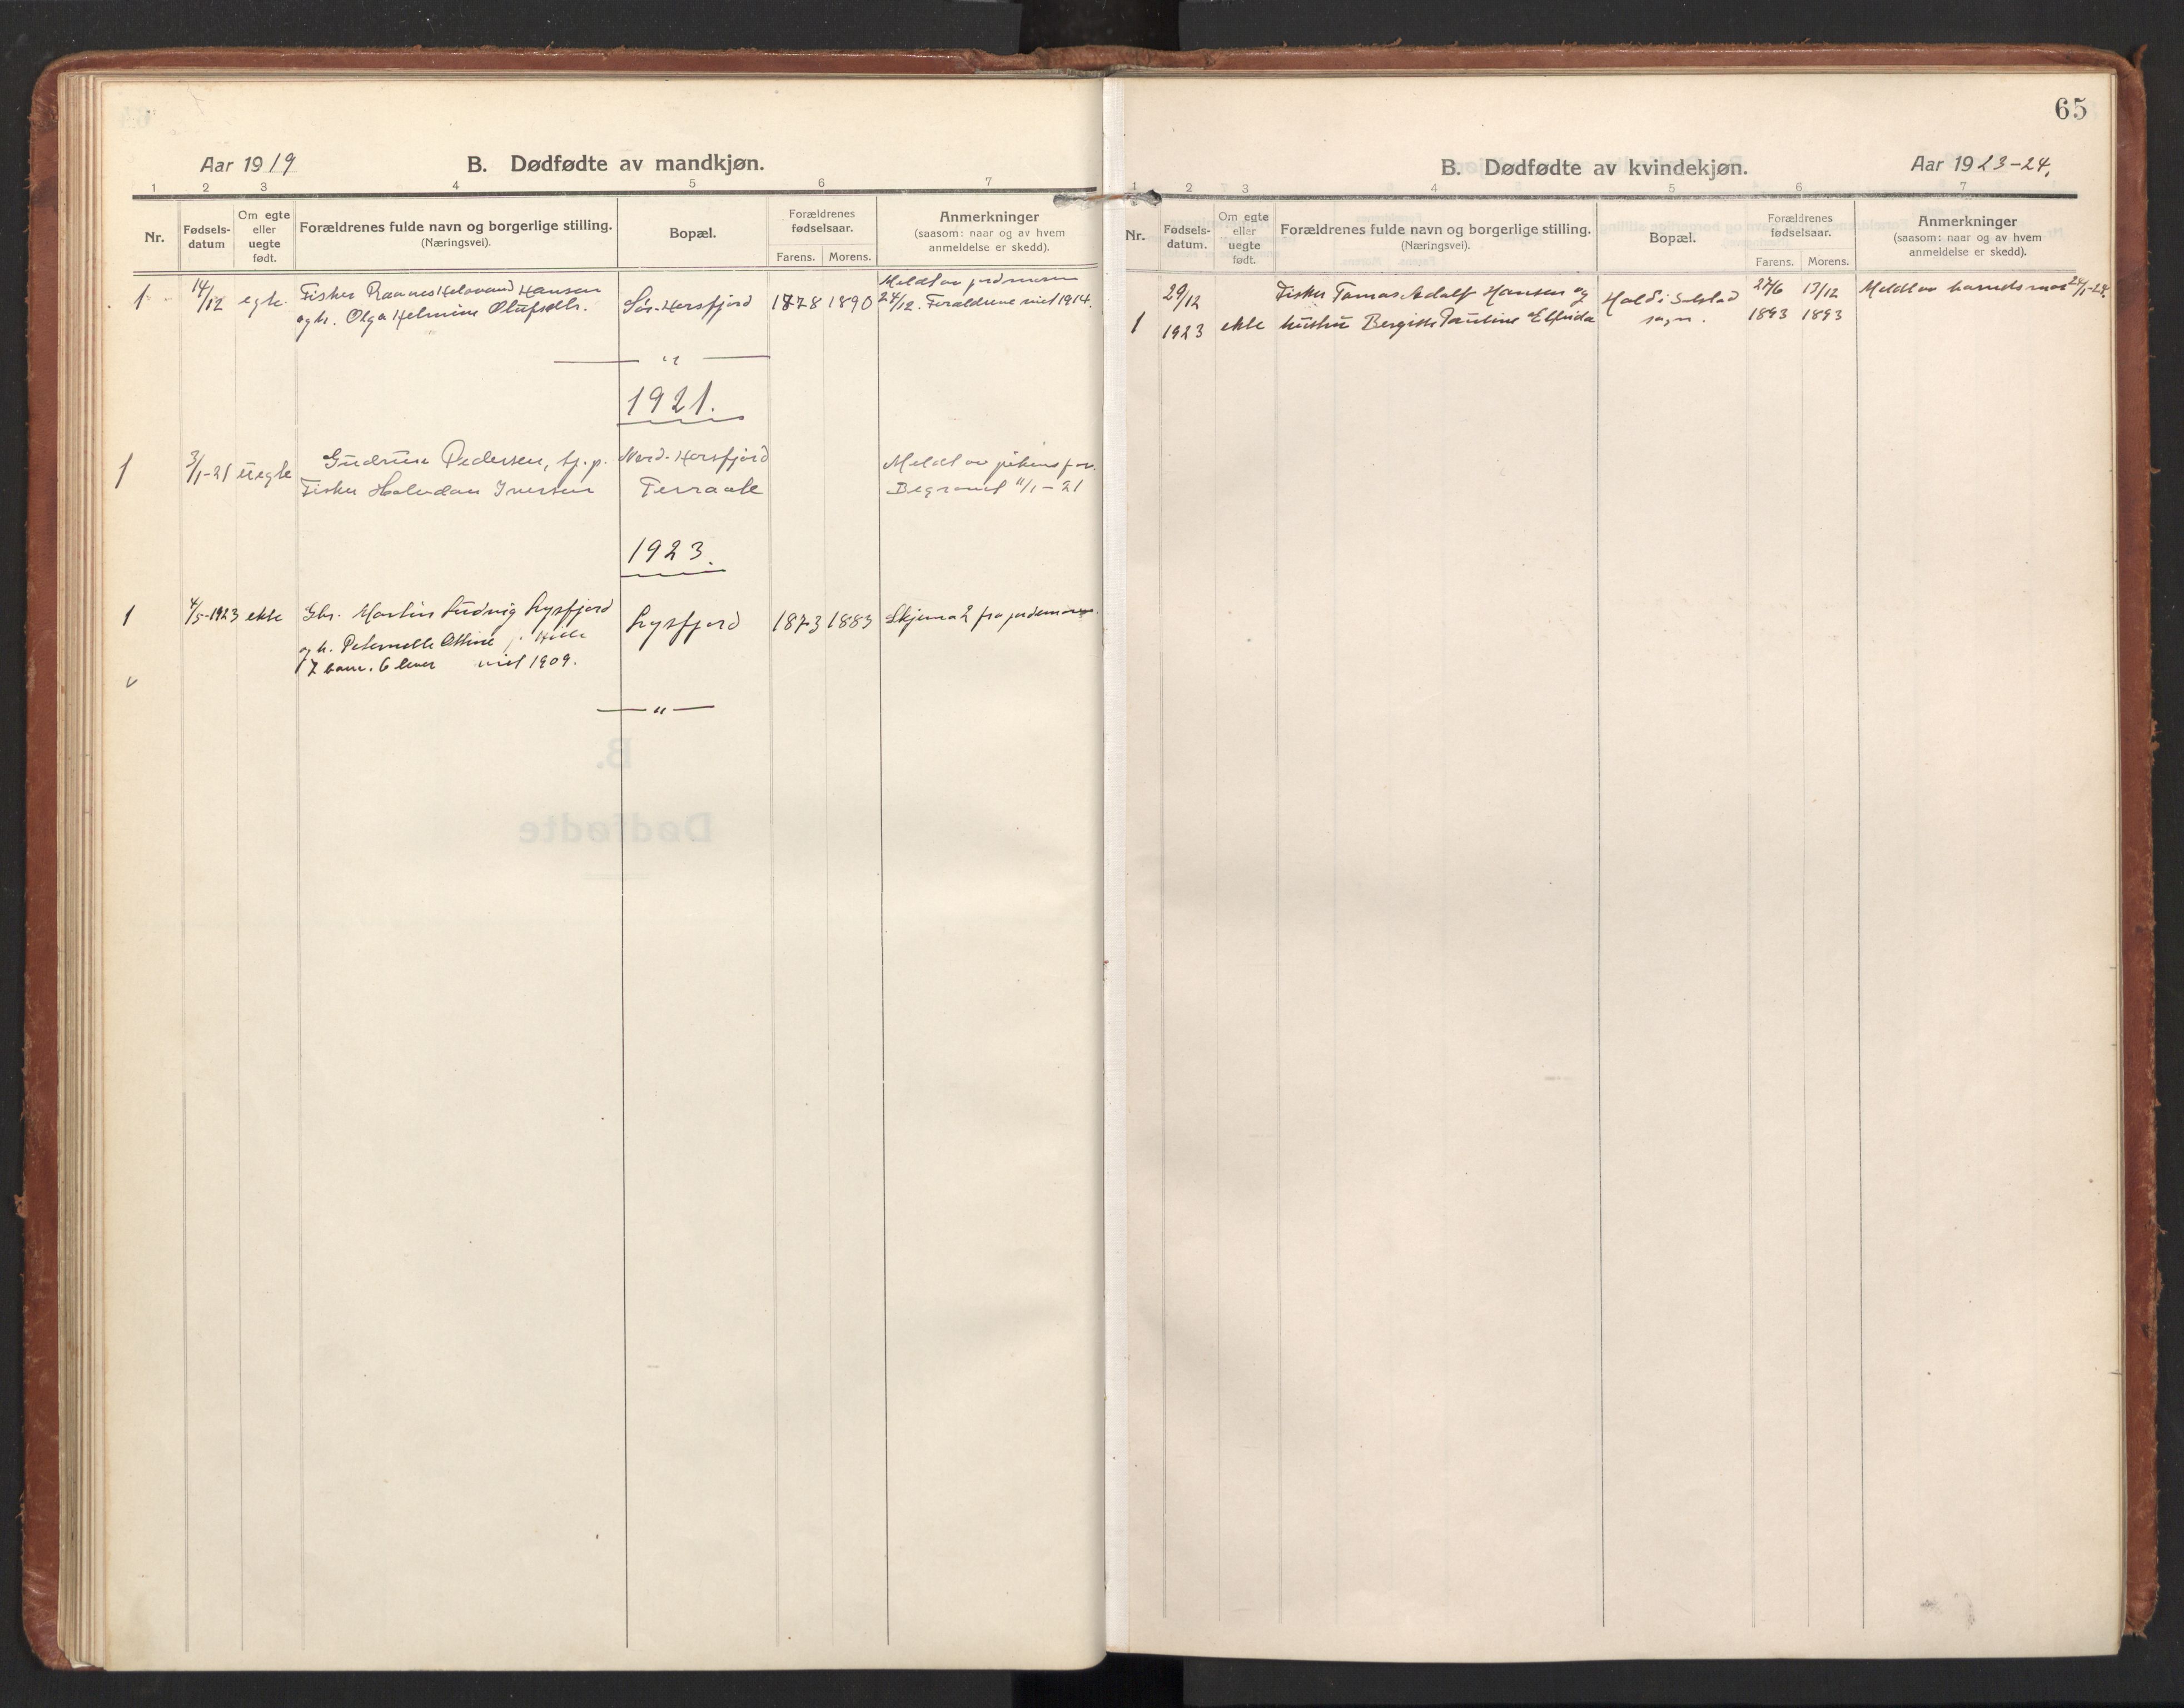 Aar 1919
B. Dødfødte av mandkjøn.
1 2 3 4 5 6 7
Nr.
Fødsels-
datum
Om egte
eller
uegte
født.
Forældrenes fulde navn og borgerlige stilling.
(Næringsvei).
Bopæl.
Forældrenes
fødselsaar.
Farens. Morens.
Anmerkninger
(saasom: naar og av hvem
anmeldelse er skedd).
1 14/12 egte. Fisker Hansen
og h. Olga Helmine Olufsdtr.
Sør-Horsfjord 1878 1890
Meldt av jordmoren
24/12. Forældrene viet 1914.
— " —
1921.
1 3/1-21 uegte
Gudrun Pedersen, tj. p.
Fisker Halvdan Iversen
Nord-Horsfjord
Terraak
Meldt av pikens far.
Begravet 11/1-21
1923.
1 4/5-1923 ekte
Gbr. Martin Ludvig Lysfjord
og h. Peternelle f.
7 barn. 6 lever viet 1909.
Lysfjord 1873 1883 Skjema 2 fra jordmoren.
— " —
65
B. Dødfødte av kvindekjøn.
Aar 1923-24.
1 2 3 4 5 6 7
Nr.
Fødsels-
datum.
Om egte
eller
uegte
født.
Forældrenes fulde navn og borgerlige stilling.
(Næringsvei).
Bopæl.
Forældrenes
fødselsaar.
Farens. Morens.
Anmerkninger
(saasom: naar og av hvem
anmeldelse er skedd).
1 29/12
1923 ekte
Fisker Tomas Adolf Hansen og
hustru Bergitte Pauline Elfrida
Hald i Solstad
sogn.
27/6
1893
13/12
1893
Meldt av barnets mor